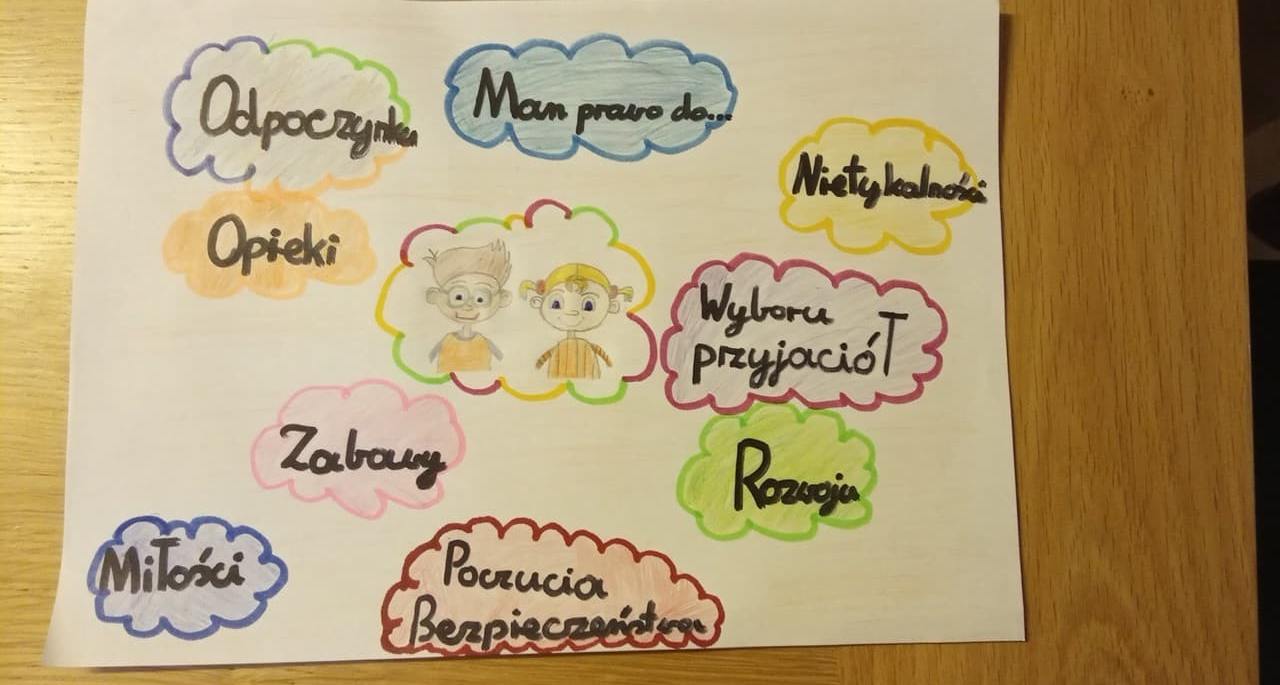 Odpoczynku
Mam prawo do...
Nietykalności
Opieki
Wyboru
przyjaciół
Zabawy
Rozwoju
Miłości
Poczucia
Bezpieczeństwa